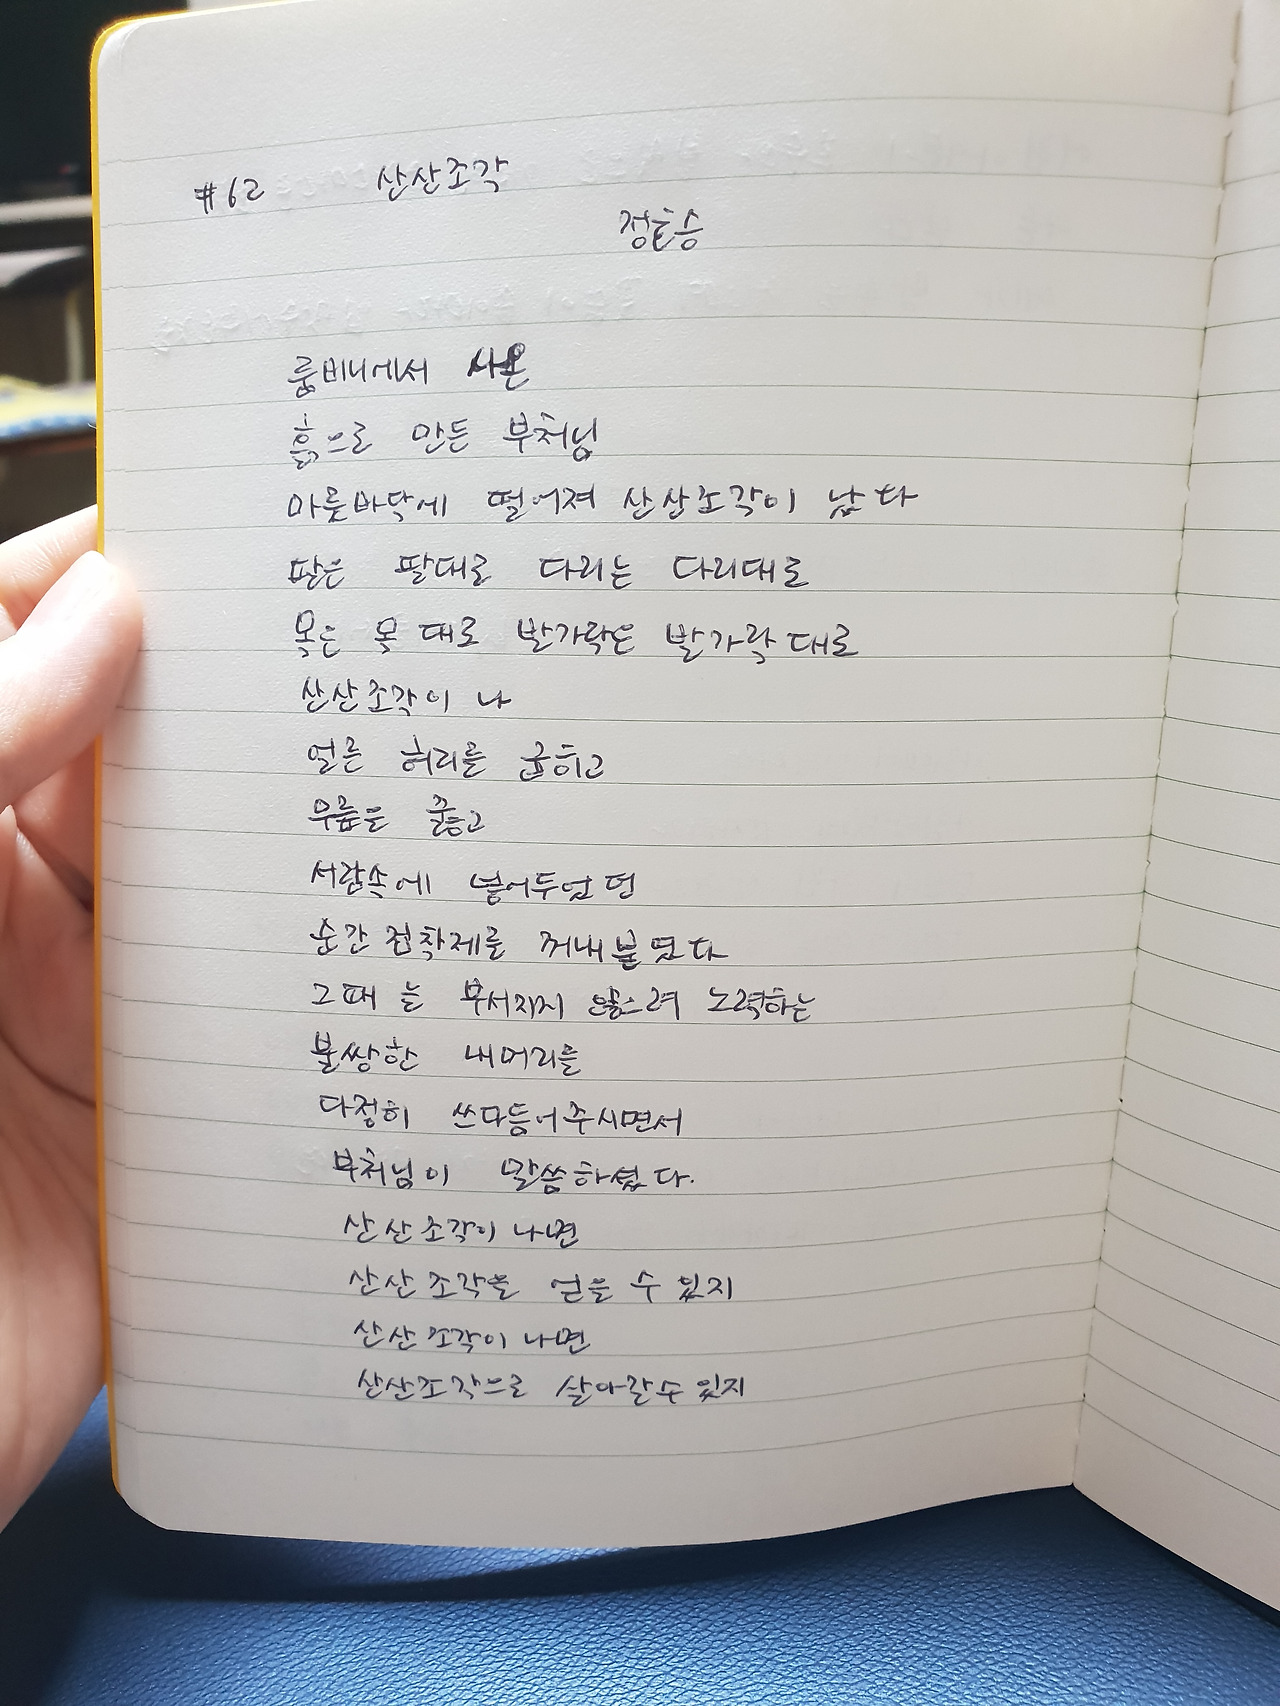 #62 산산조각
정호승
룸비니에서 사온
흙으로 만든 부처님
마룻바닥에 떨어져 산산조각이 났다
팔은 팔대로 다리는 다리대로
목은 목 대로 발가락은 발가락 대로
산산조각이 나
얼른 허리를 굽히고
무릎은 꿇고
서랍속에 넣어두었던
순간접착제를 꺼내 붙였다
그때는 부서지지 않으려 노력하는
불쌍한 내머리를
다정히 쓰다듬어주시면서
부처님이 말씀하셨다.
산산조각이 나면
산산조각을 얻을 수 있지
산산조각이 나면
산산조각으로 살아갈수 있지